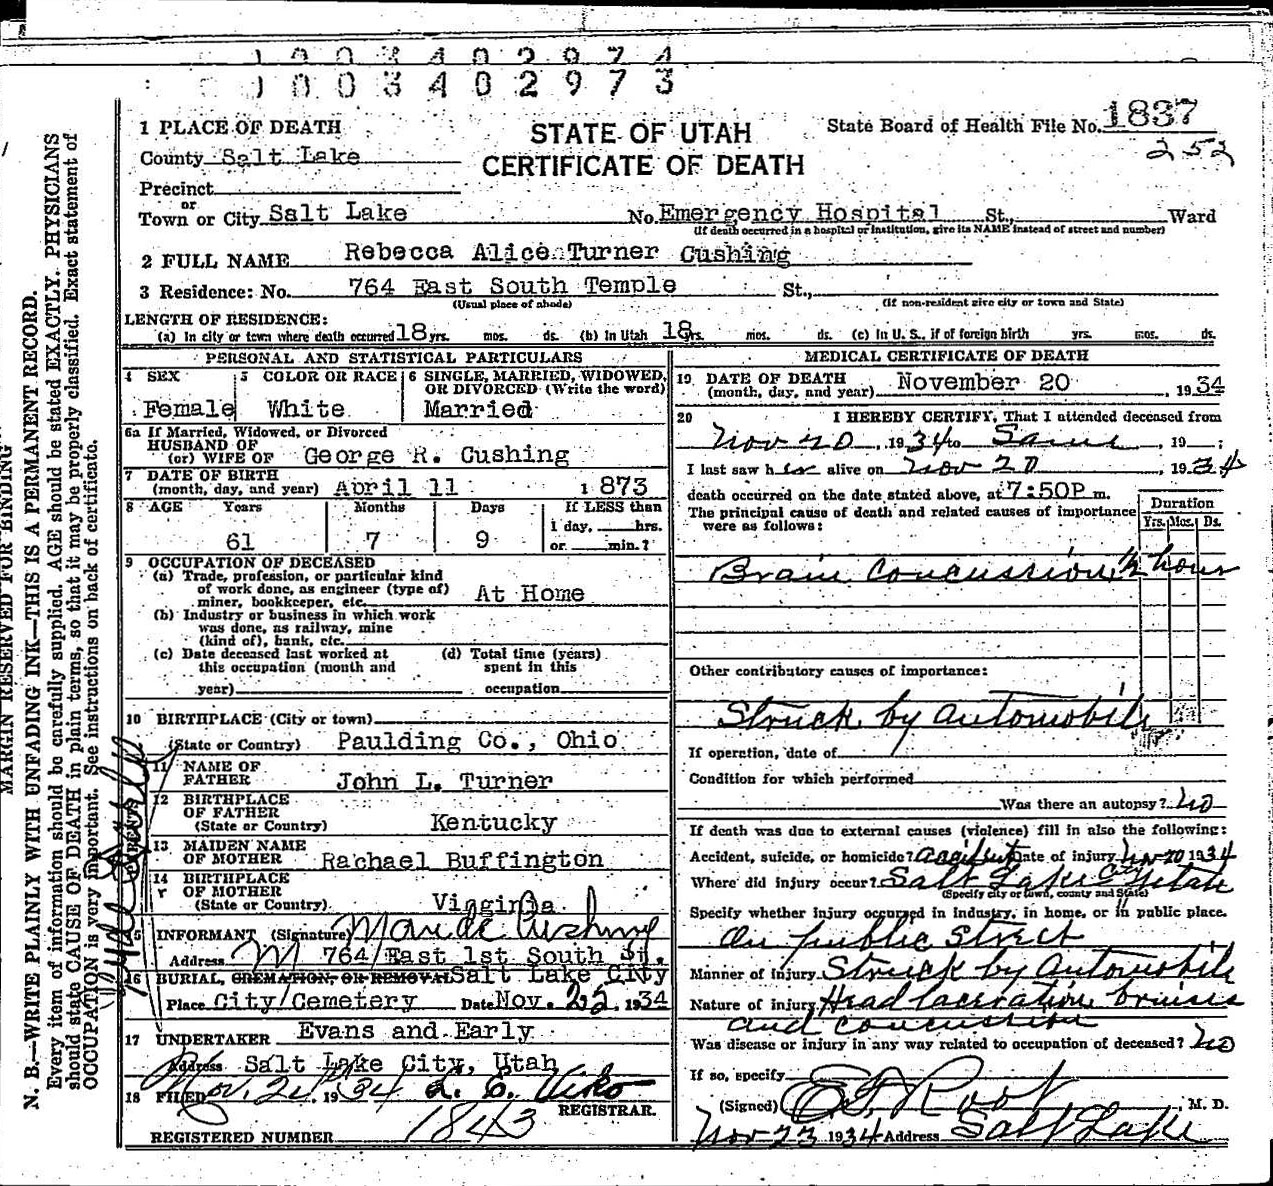 1 0 0 3 4 0 2 9 7 4
1 0 0 3 4 0 2 9 7 3
1 PLACE OF DEATH
County Salt Lake
Precinct
or
Town or City Salt Lake No. Emergency Hospital St., Ward
(If death occurred in a hospital or institution, give its NAME instead of street and number)
STATE OF UTAH
CERTIFICATE OF DEATH
State Board of Health File No. 1837
252
2 FULL NAME Rebecca Alice Turner Cushing
3 Residence: No. 764 East South Temple St.,
(Usual place of abode) (If non-resident give city or town and State)
LENGTH OF RESIDENCE:
(a) In city or town where death occurred 18 yrs. mos. ds. (b) In Utah 18 yrs. mos. ds. (c) In U. S., if of foreign birth yrs. mos. ds.
PERSONAL AND STATISTICAL PARTICULARS
4 SEX
Female
5 COLOR OR RACE
White
6 SINGLE, MARRIED, WIDOWED,
OR DIVORCED (Write the word)
Married
6a If Married, Widowed, or Divorced
HUSBAND OF
(or) WIFE OF George R. Cushing
7 DATE OF BIRTH
(month, day, and year) April 11 1873
8 AGE Years Months Days If LESS than
1 day, hrs.
61 7 9 or min.?
9 OCCUPATION OF DECEASED
(a) Trade, profession, or particular kind
of work done, as engineer (type of)
miner, bookkeeper, etc. At Home
(b) Industry or business in which work
was done, as railway, mine
(kind of), bank, etc.
(c) Date deceased last worked at
this occupation (month and
year)
(d) Total time (years)
spent in this
occupation
10 BIRTHPLACE (City or town)
(State or Country) Paulding Co., Ohio
11 NAME OF
FATHER John L. Turner
12 BIRTHPLACE
OF FATHER
(State or Country) Kentucky
13 MAIDEN NAME
OF MOTHER Rachael Buffington
14 BIRTHPLACE
OF MOTHER
(State or Country) Virginia
15 INFORMANT (Signature) Maude Cushing
Address 764 East 1st South St.
16 BURIAL, CREMATION, OR REMOVAL Salt Lake City
Place City Cemetery Date Nov. 22, 1934
17 UNDERTAKER Evans and Early
Address Salt Lake City, Utah
18 FILED Nov. 21 1934
REGISTRAR.
REGISTERED NUMBER 1843
MEDICAL CERTIFICATE OF DEATH
19 DATE OF DEATH
(month, day, and year) November 20 , 1934
20 I HEREBY CERTIFY, That I attended deceased from
Nov 20 , 1934 to Same , 19 ;
I last saw her alive on Nov 20 , 1934
death occurred on the date stated above, at 7:50P m.
The principal cause of death and related causes of importance
were as follows:
Duration
Yrs. Mos. Ds.
Brain Concussion ½ hour
Other contributory causes of importance:
Struck by automobile
If operation, date of
Condition for which performed
Was there an autopsy? No
If death was due to external causes (violence) fill in also the following:
Accident, suicide, or homicide? accident Date of injury Nov 20 1934
Where did injury occur? Salt Lake City Utah
(Specify city or town, county and State)
Specify whether injury occurred in industry, in home, or in public place.
On public street
Manner of Injury Struck by Automobile
Nature of injury Head laceration, bruises
and concussion
Was disease or injury in any way related to occupation of deceased? No
If so, specify
(Signed) E. F. Root , M. D.
Nov 23 1934 Address Salt Lake
MARGIN RESERVED FOR BINDING
N. B.—WRITE PLAINLY WITH UNFADING INK—THIS IS A PERMANENT RECORD.
Every item of information should be carefully supplied. AGE should be stated EXACTLY. PHYSICIANS
should state CAUSE OF DEATH in plain terms, so that it may be properly classified. Exact statement of
OCCUPATION is very important. See instructions on back of certificate.